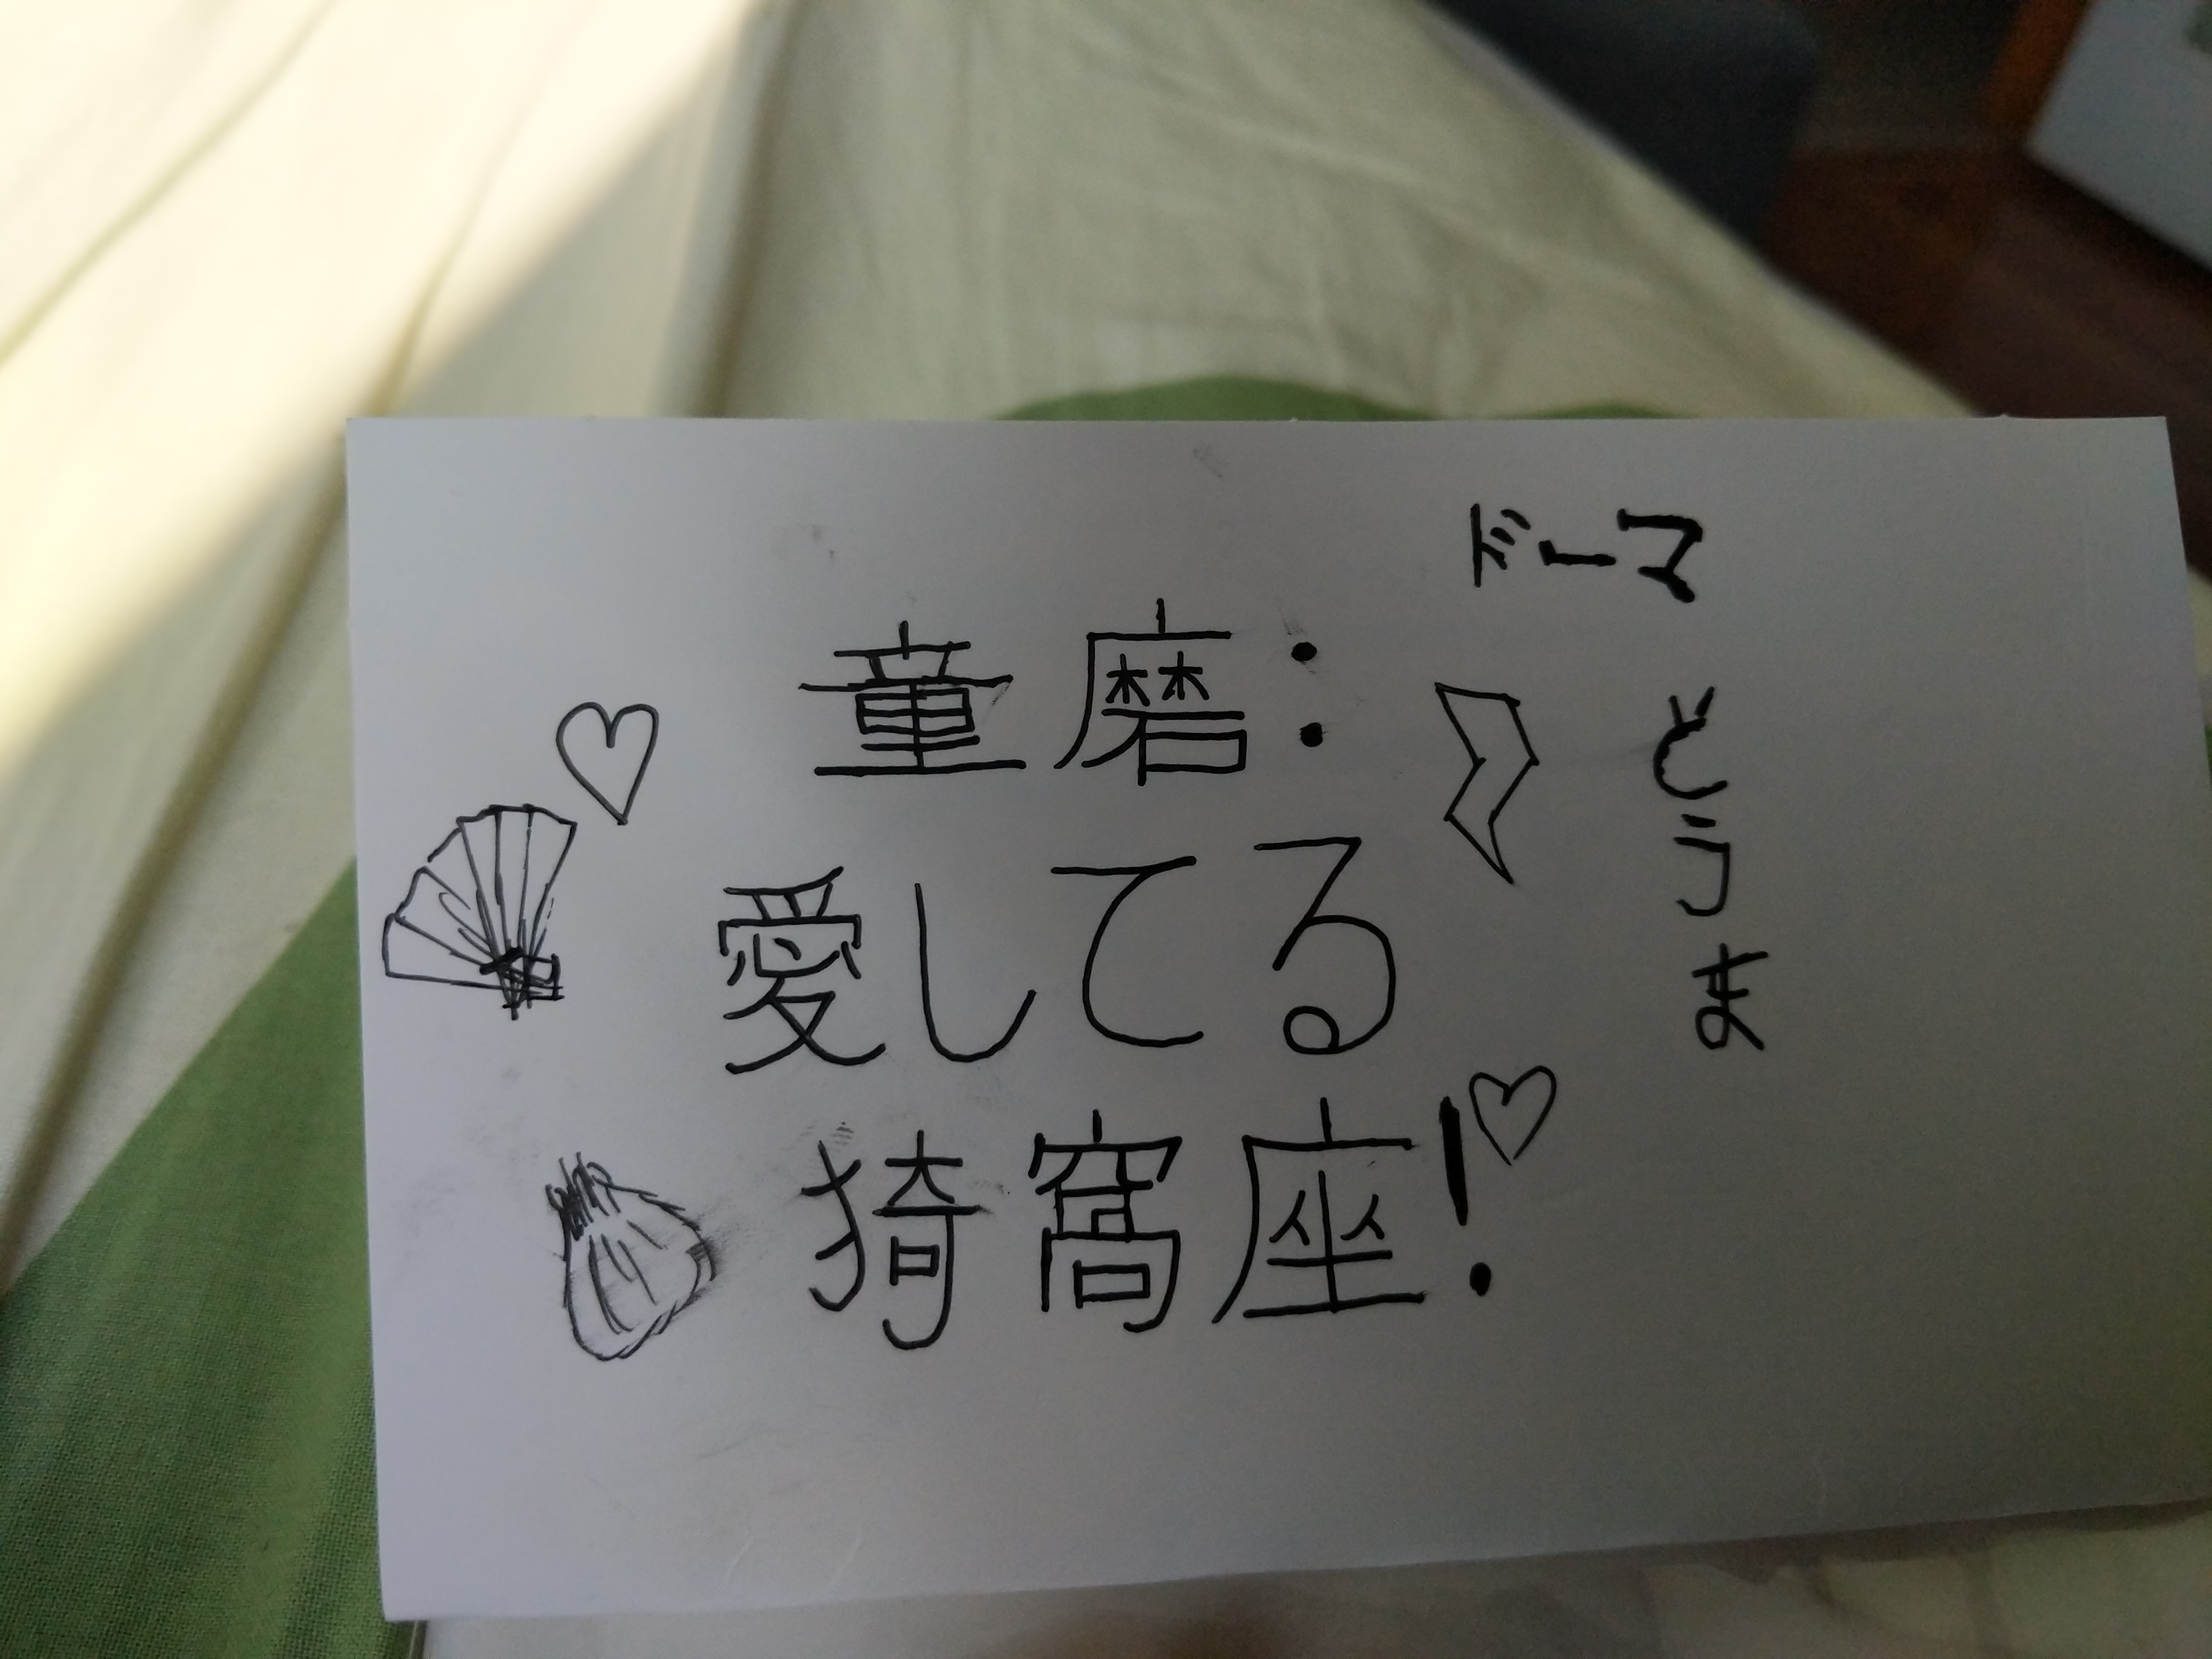 ドーマ
童磨:
どうま
愛してる
猗窩座!